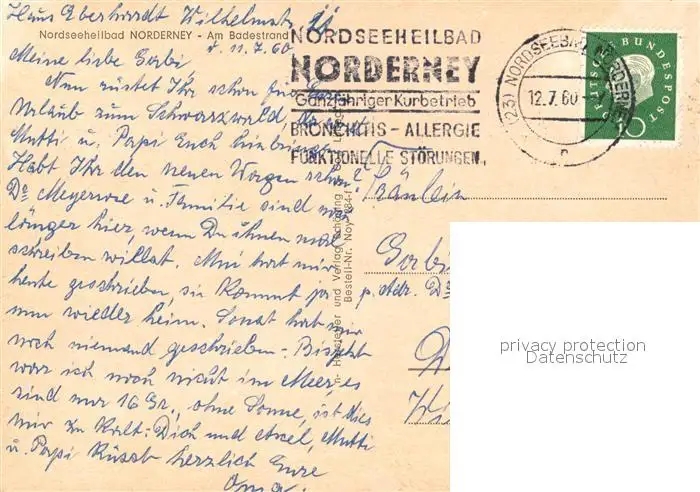 Haus Eberhardt Wilhelmstr.
Nordseeheilbad NORDERNEY - Am Badestrand
d. 11.7.60
Meine liebe Gabi
Nun rüstet Ihr schon für Euren
Urlaub zum Schwarzwald,
Mutti u. Papi Euch hinbringt
Habt Ihr den neuen Wagen schon?
Dr Meyerrose u. Familie sind noch
länger hier, wenn Du ihnen mal
schreiben willst. hat mir
heute geschrieben, sie kommt ja
nun wieder heim. Sonst hat mir
noch niemand geschrieben. Bis jetzt
war ich noch nicht im Meer, es
sind nur 16 Gr., ohne Sonne, ist dies
mir zu kalt. Dich und Mutti
u. Papi küsst herzlich Eure
Oma.
NORDSEEHEILBAD
NORDERNEY
Ganzjähriger Kurbetrieb
BRONCHITIS - ALLERGIE
FUNKTIONELLE STÖRUNGEN
(23) NORDSEEBAD NORDERNEY
12.7.60
n
DEUTSCHE BUNDESPOST
Hersteller und Verlag Schöning
Bestell-Nr. Noy
Fräulein
Gabi
p. Adr. Dr
privacy protection
Datenschutz